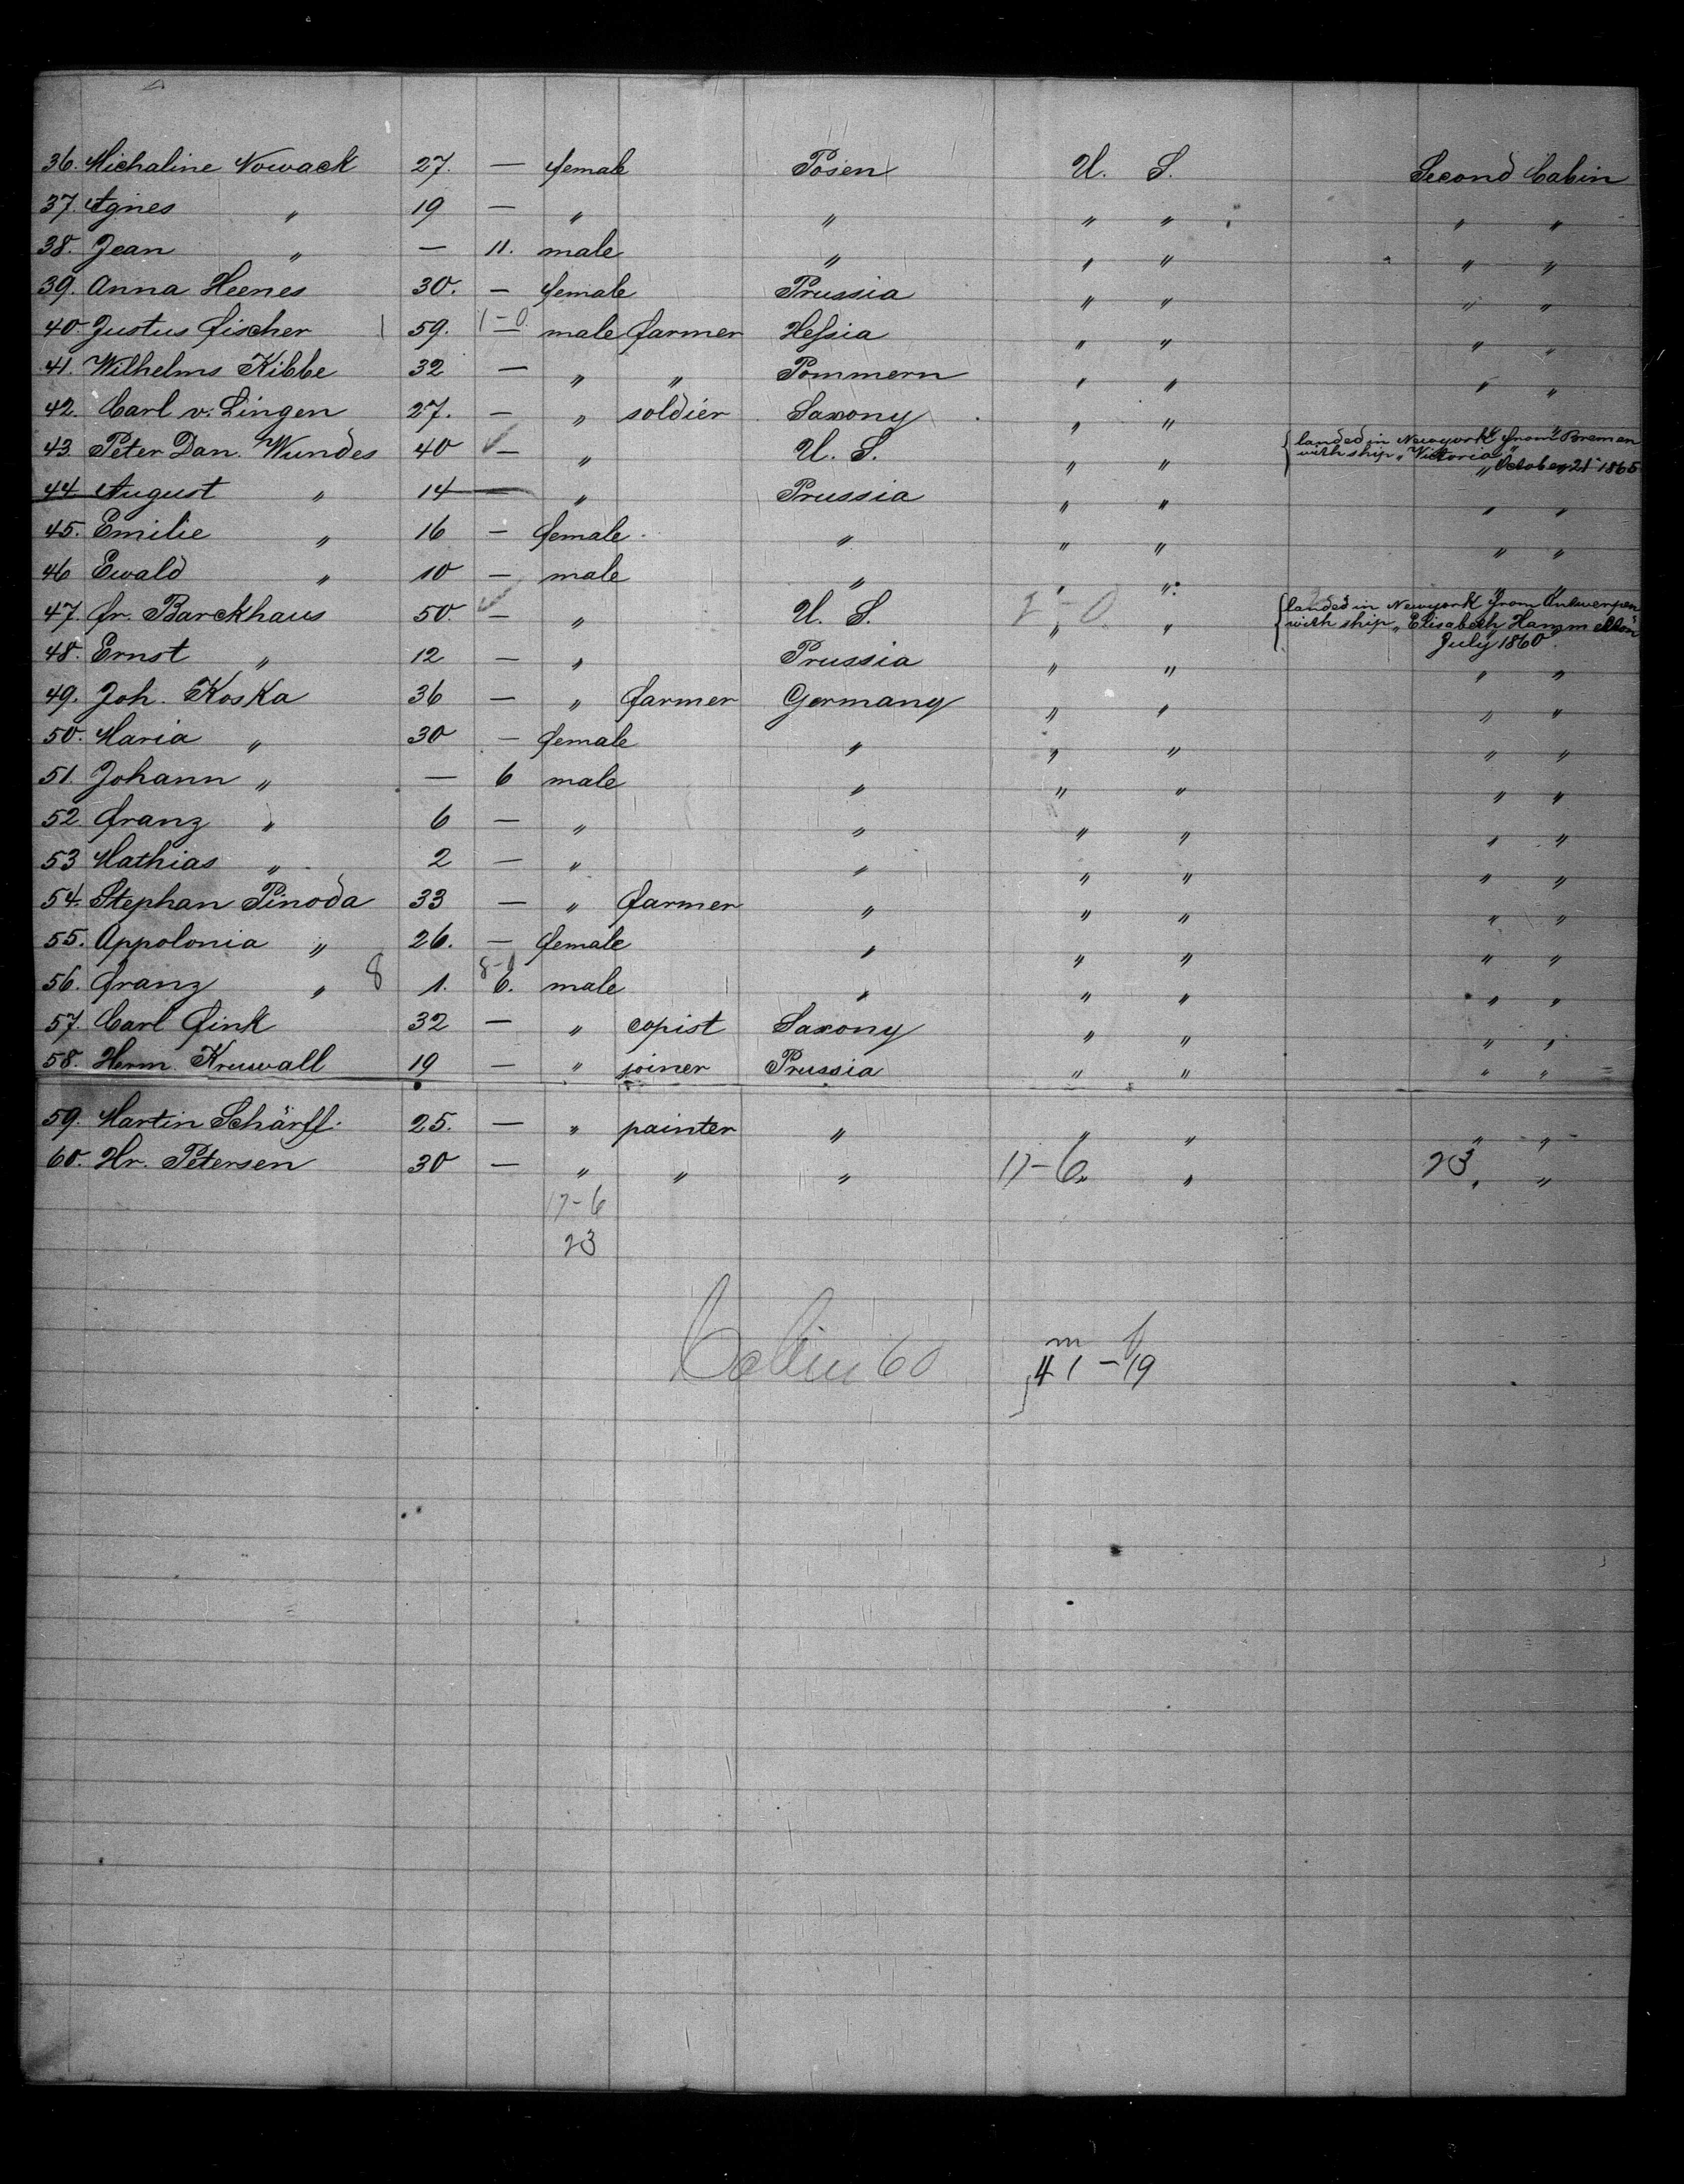 36. Michaline Nowack 27. — female Posen U. S. Second Cabin
37. Agnes " 19 — " " " " " "
38. Jean " — 11. male " " " " "
39. Anna Heenes 30. — female Prussia " " " "
40. Justus Fischer 1 59. 1-0 — male farmer Hessia " " " "
41. Wilhelms Kibbe 32 — " " Pommern " " " "
42. Carl v. Lingen 27. — " soldier Saxony " " " "
43. Peter Dan. Wundes 40 — " U. S. " " landed in Newyork from Bremen
with ship „Victoria"
October 21 1865
44 August " 14 — " Prussia " " " "
45. Emilie " 16 — female " " " " "
46 Ewald " 10 — male " " " " "
47. Fr. Barckhaus 50. — " U. S. 2-0 " " landed in Newyork from Antwerpen
with ship „Elisabeth
July 1860.
48. Ernst " 12 — " Prussia " " " "
49. Joh. Koska 36 — " farmer Germany " " " "
50. Maria " 30 — female " " " " "
51. Johann " — 6 male " " " " "
52. Franz " 6 — " " " " " "
53 Mathias " 2 — " " " " " "
54. Stephan Pinoda 33 — " farmer " " " " "
55. Appolonia " 26. — female " " " " "
56. Franz " 8 1. 8-0 6. male " " " " "
57. Carl Fink 32 — " copist Saxony " " " "
58. Herm. Kruwall 19 — " joiner Prussia " " " "
59. Martin Schärff. 25. — " painter " " " " "
60. Hr. Petersen 30 — " " " 17-6 " " 23 " "
17-6
23
m f
Cabin 60 41-19